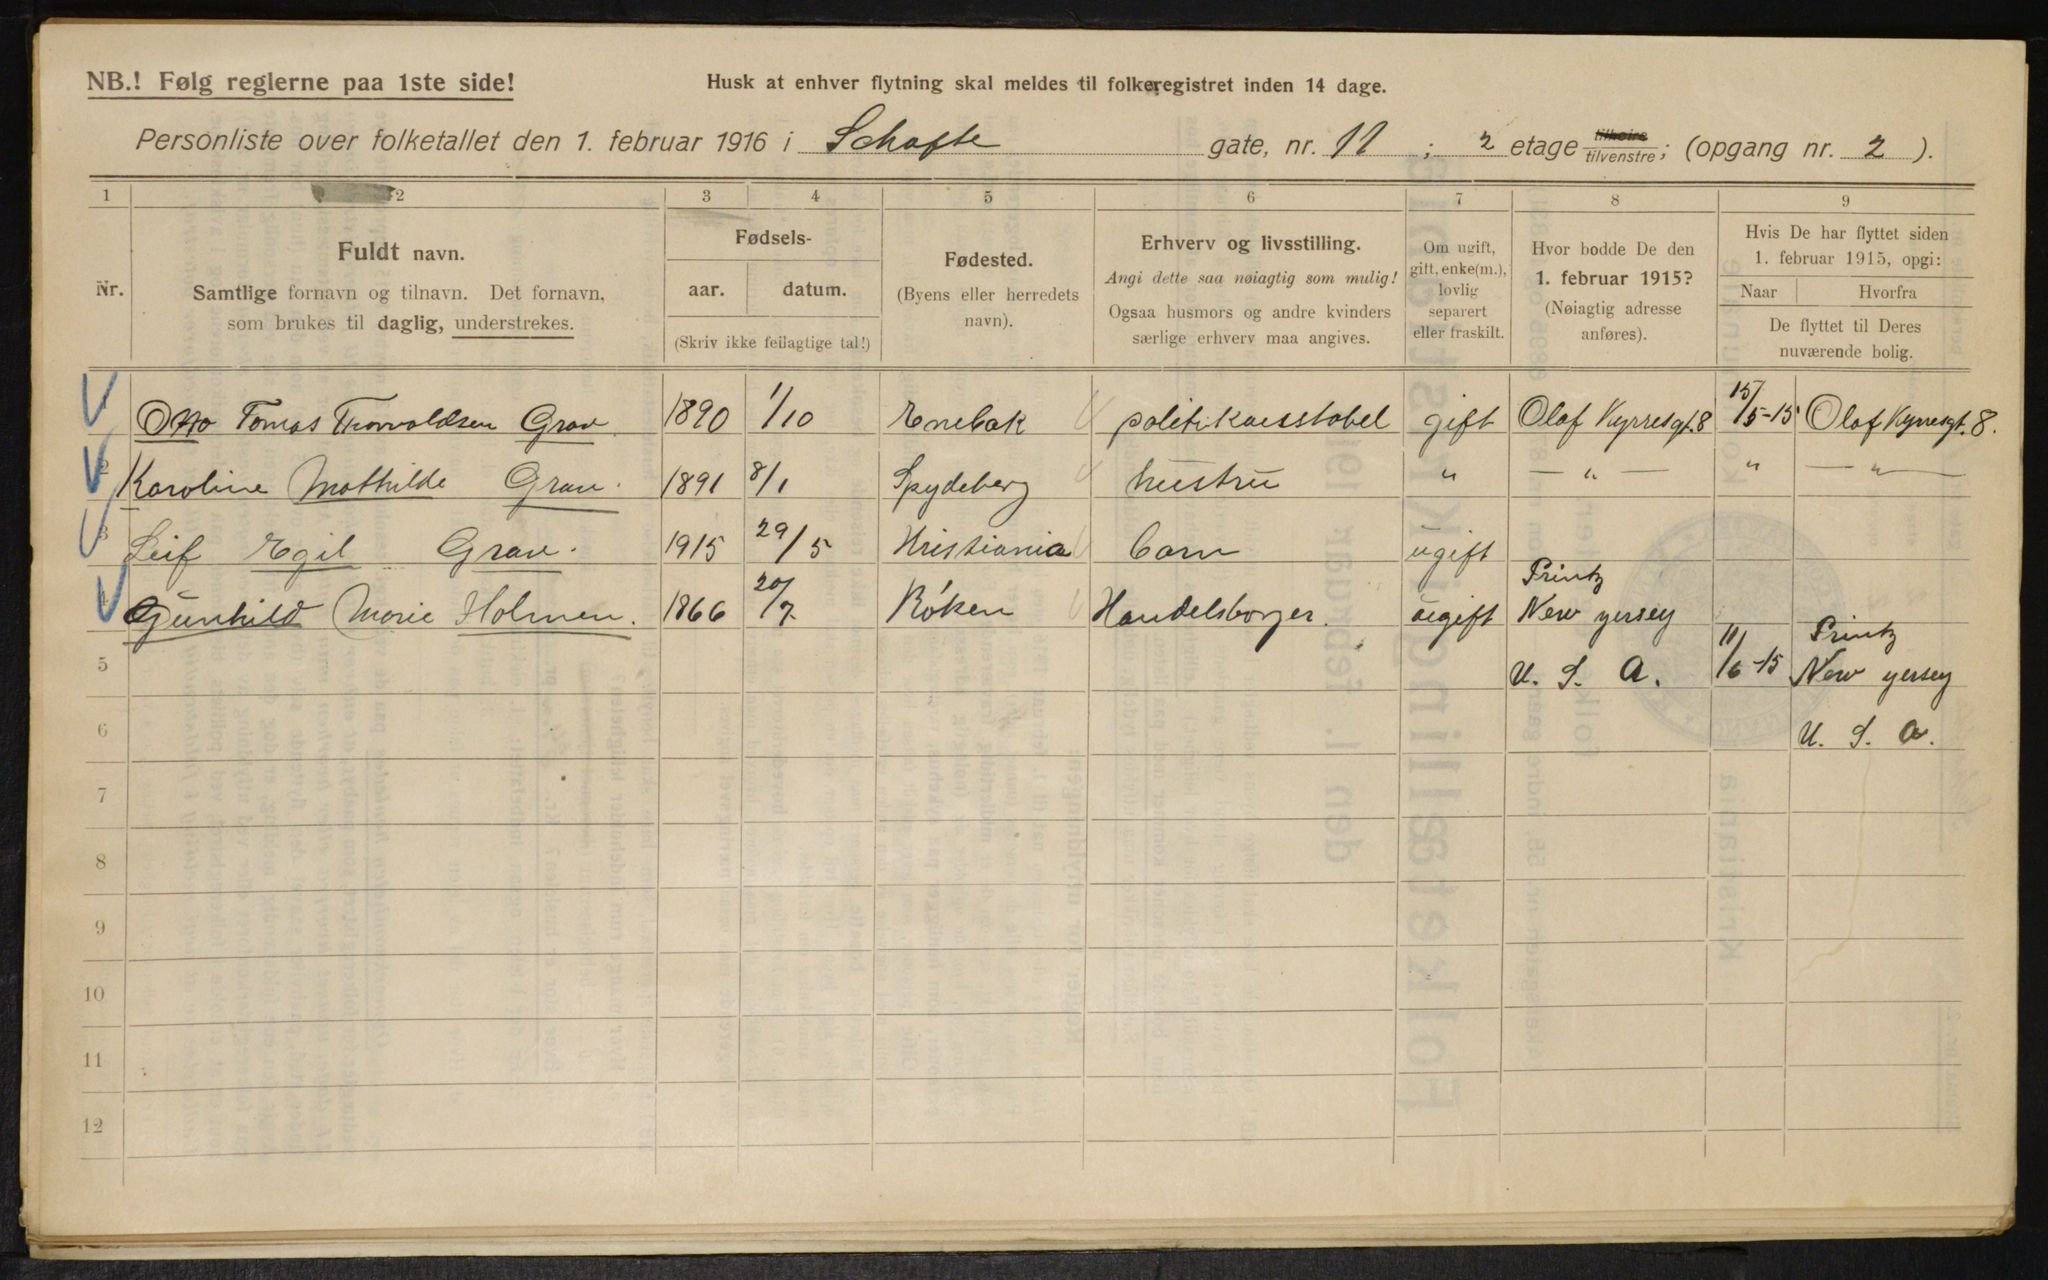 NB.! Følg reglerne paa 1ste side!
Husk at enhver flytning skal meldes til folkeregistret inden 14 dage.
Personliste over folketallet den 1. februar 1916 i Schafte gate, nr. 11 ; 2 etage tilhoire tilvenstre; (opgang nr. 2 ).
1 2 3 4 5 6 7 8 9
Nr.
Fuldt navn.
Samtlige fornavn og tilnavn. Det fornavn,
som brukes til daglig, understrekes.
Fødsels-
aar. datum.
(Skriv ikke feilagtige tal!)
Fødested.
(Byens eller herredets
navn).
Erhverv og livsstilling.
Angi dette saa nøiagtig som mulig!
Ogsaa husmors og andre kvinders
særlige erhverv maa angives.
Om ugift,
gift, enke(m.),
lovlig
separert
eller fraskilt.
Hvor bodde De den
1. februar 1915?
(Nøiagtig adresse
anføres).
Hvis De har flyttet siden
1. februar 1915, opgi:
Naar Hvorfra
De flyttet til Deres
nuværende bolig.
Otto Tomas Thorvaldsen Grav 1890 1/10 Enebak politikonstabel gift Olaf Kyrresgt. 8 15/5-15 Olaf Kyrresgt. 8.
2 Karoline Mathilde Grav. 1891 8/1 Spydeberg hustru " — " — " — " —
3 Leif Egil Grav. 1915 29/5 Kristiania barn ugift
4 Gunhild Marie Holmen. 1866 20/7 Røken Handelsborger. ugift Printz
New yersey
U. S. A. 11/6-15 Printz
New yersey
U. S. A.
5
6
7
8
9
10
11
12